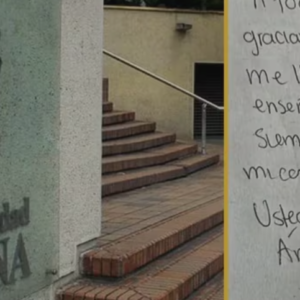 dad
NA
gracia
me l
ense
siem
mi co
Uste
Án